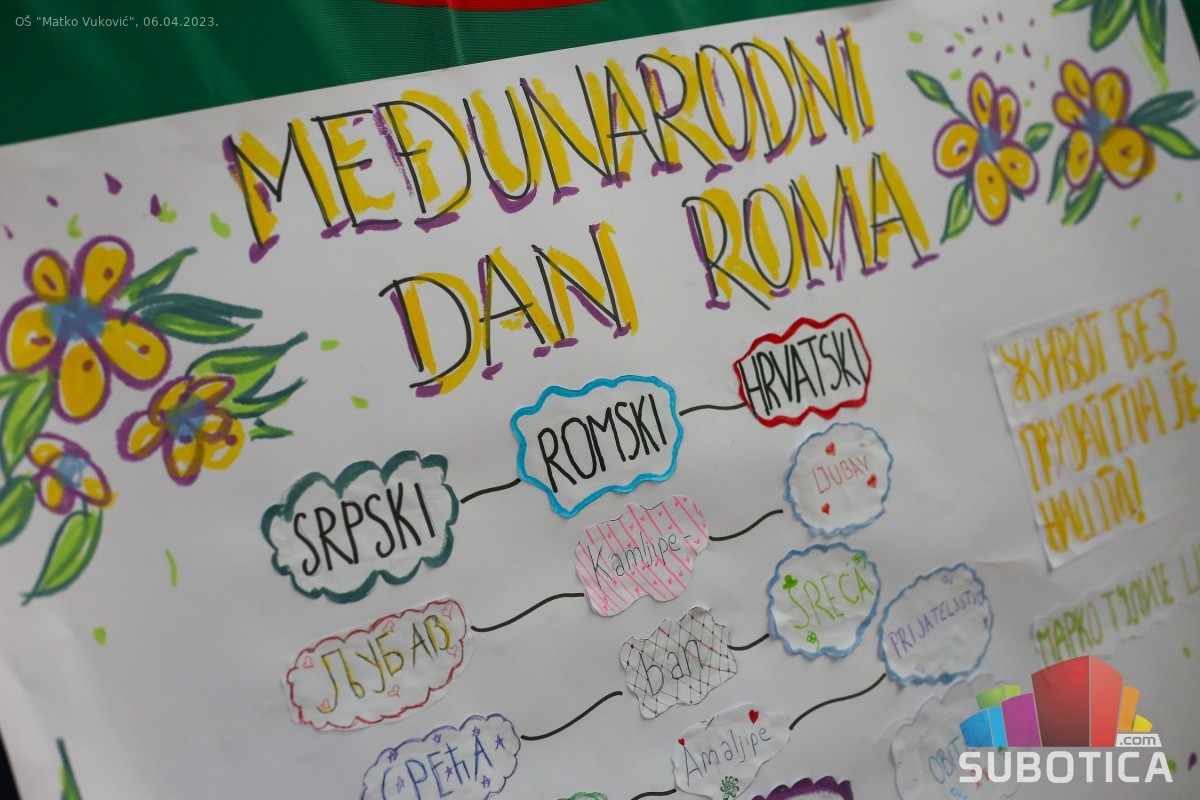 OŠ "Matko Vuković", 06.04.2023.
MEĐUNARODNI
DAN ROMA
SRPSKI
ROMSKI
HRVATSKI
ЉУБАВ
Kamljipe-
LJUBAV
СРЕЋА
bah
SREĆA
Amaljipe
PRIJATELJSTVO
ЖИВОТ БЕЗ
ПРИЈАТЕЉА ЈЕ
НИШТА!
МАРКО
OBIT
.com
SUBOTICA